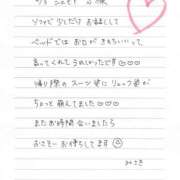 ソファで少しだけお話しして
ベッドでは おたがい
言ってくれて うれしかったです
帰り際の スーツ姿に リュック姿が
ちょっと 萌えてました
またお時間 合いましたら
お待ちしてます
みさき